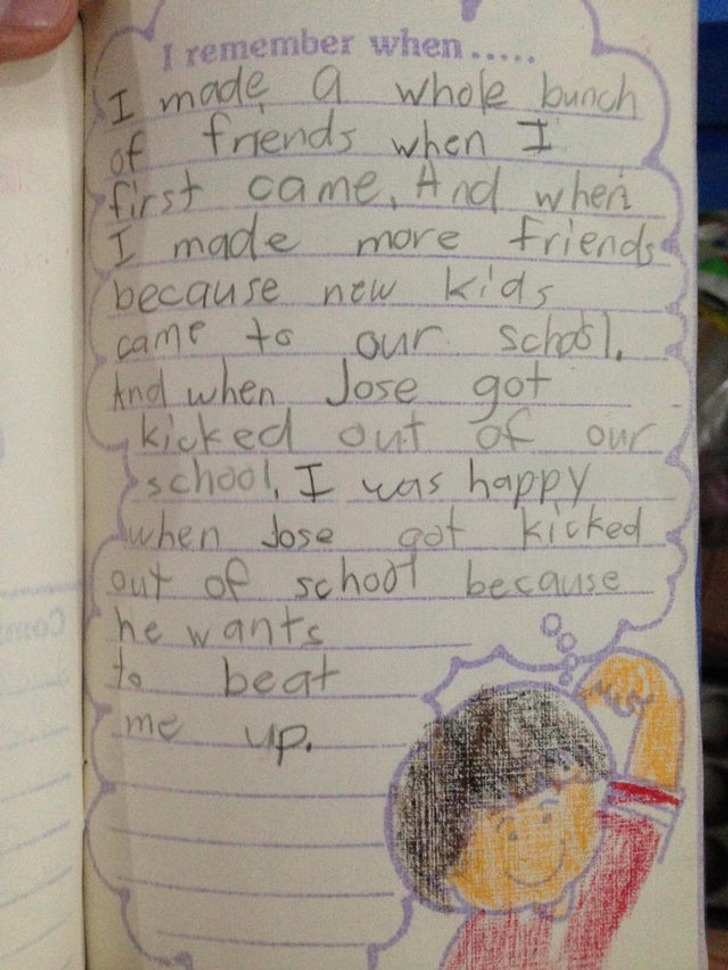 I remember when.....
I made a whole bunch
of friends when I
first came. And when
I made more friends
because new kids
came to our school.
And when Jose got
kicked out of our
school. I was happy
when Jose got kicked
out of school because
he wants
to beat
me up.